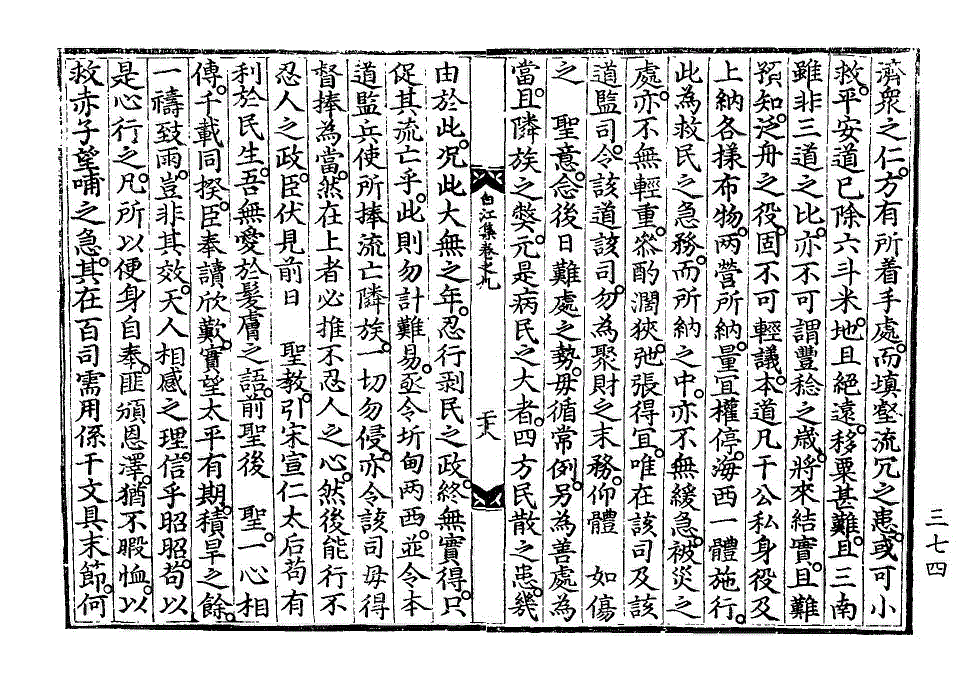 濟衆之仁。方有所着手處。而塡壑流冗之患。或可小
救。平安道已除六斗米。地且絕遠。移粟甚難。且三南
雖非三道之比。亦不可謂豐稔之歲。將來結實。且難
預知。泛舟之役。固不可輕議。本道凡干公私身役及
上納各樣布物。兩營所納。量宜權停。海西一體施行。
此為救民之急務。而所納之中。亦不無緩急。被災之
處。亦不無輕重。叅酌濶狹。弛張得宜。唯在該司及該
道監司。令該道該司。勿為聚財之末務。仰體 如傷
之 聖意。念後日難處之勢。毋循常例。另為善處為
當。且隣族之弊。元是病民之大者。四方民散之患。幾
白江集卷之九
二十八
由於此。况此大無之年。忍行剥民之政。終無實得。只
促其流亡乎。此則勿計難易。亟令圻甸兩西。並令本
道監兵使所捧流亡隣族。一切勿侵。亦令該司毋得
督捧為當。然在上者必推不忍人之心。然後能行不
忍人之政。臣伏見前日 聖教。引宋宣仁太后苟有
利於民生。吾無愛於髮膚之語。前聖後 聖。一心相
傳。千載同揆。臣奉讀欣歎。實望太平有期。積旱之餘。
一禱致雨。豈非其效。天人相感之理。信乎昭昭。苟以
是心行之。凡所以便身自奉。匪頒恩澤。猶不暇恤。以
救赤子望哺之急。其在百司需用係干文具末節。何
三七四